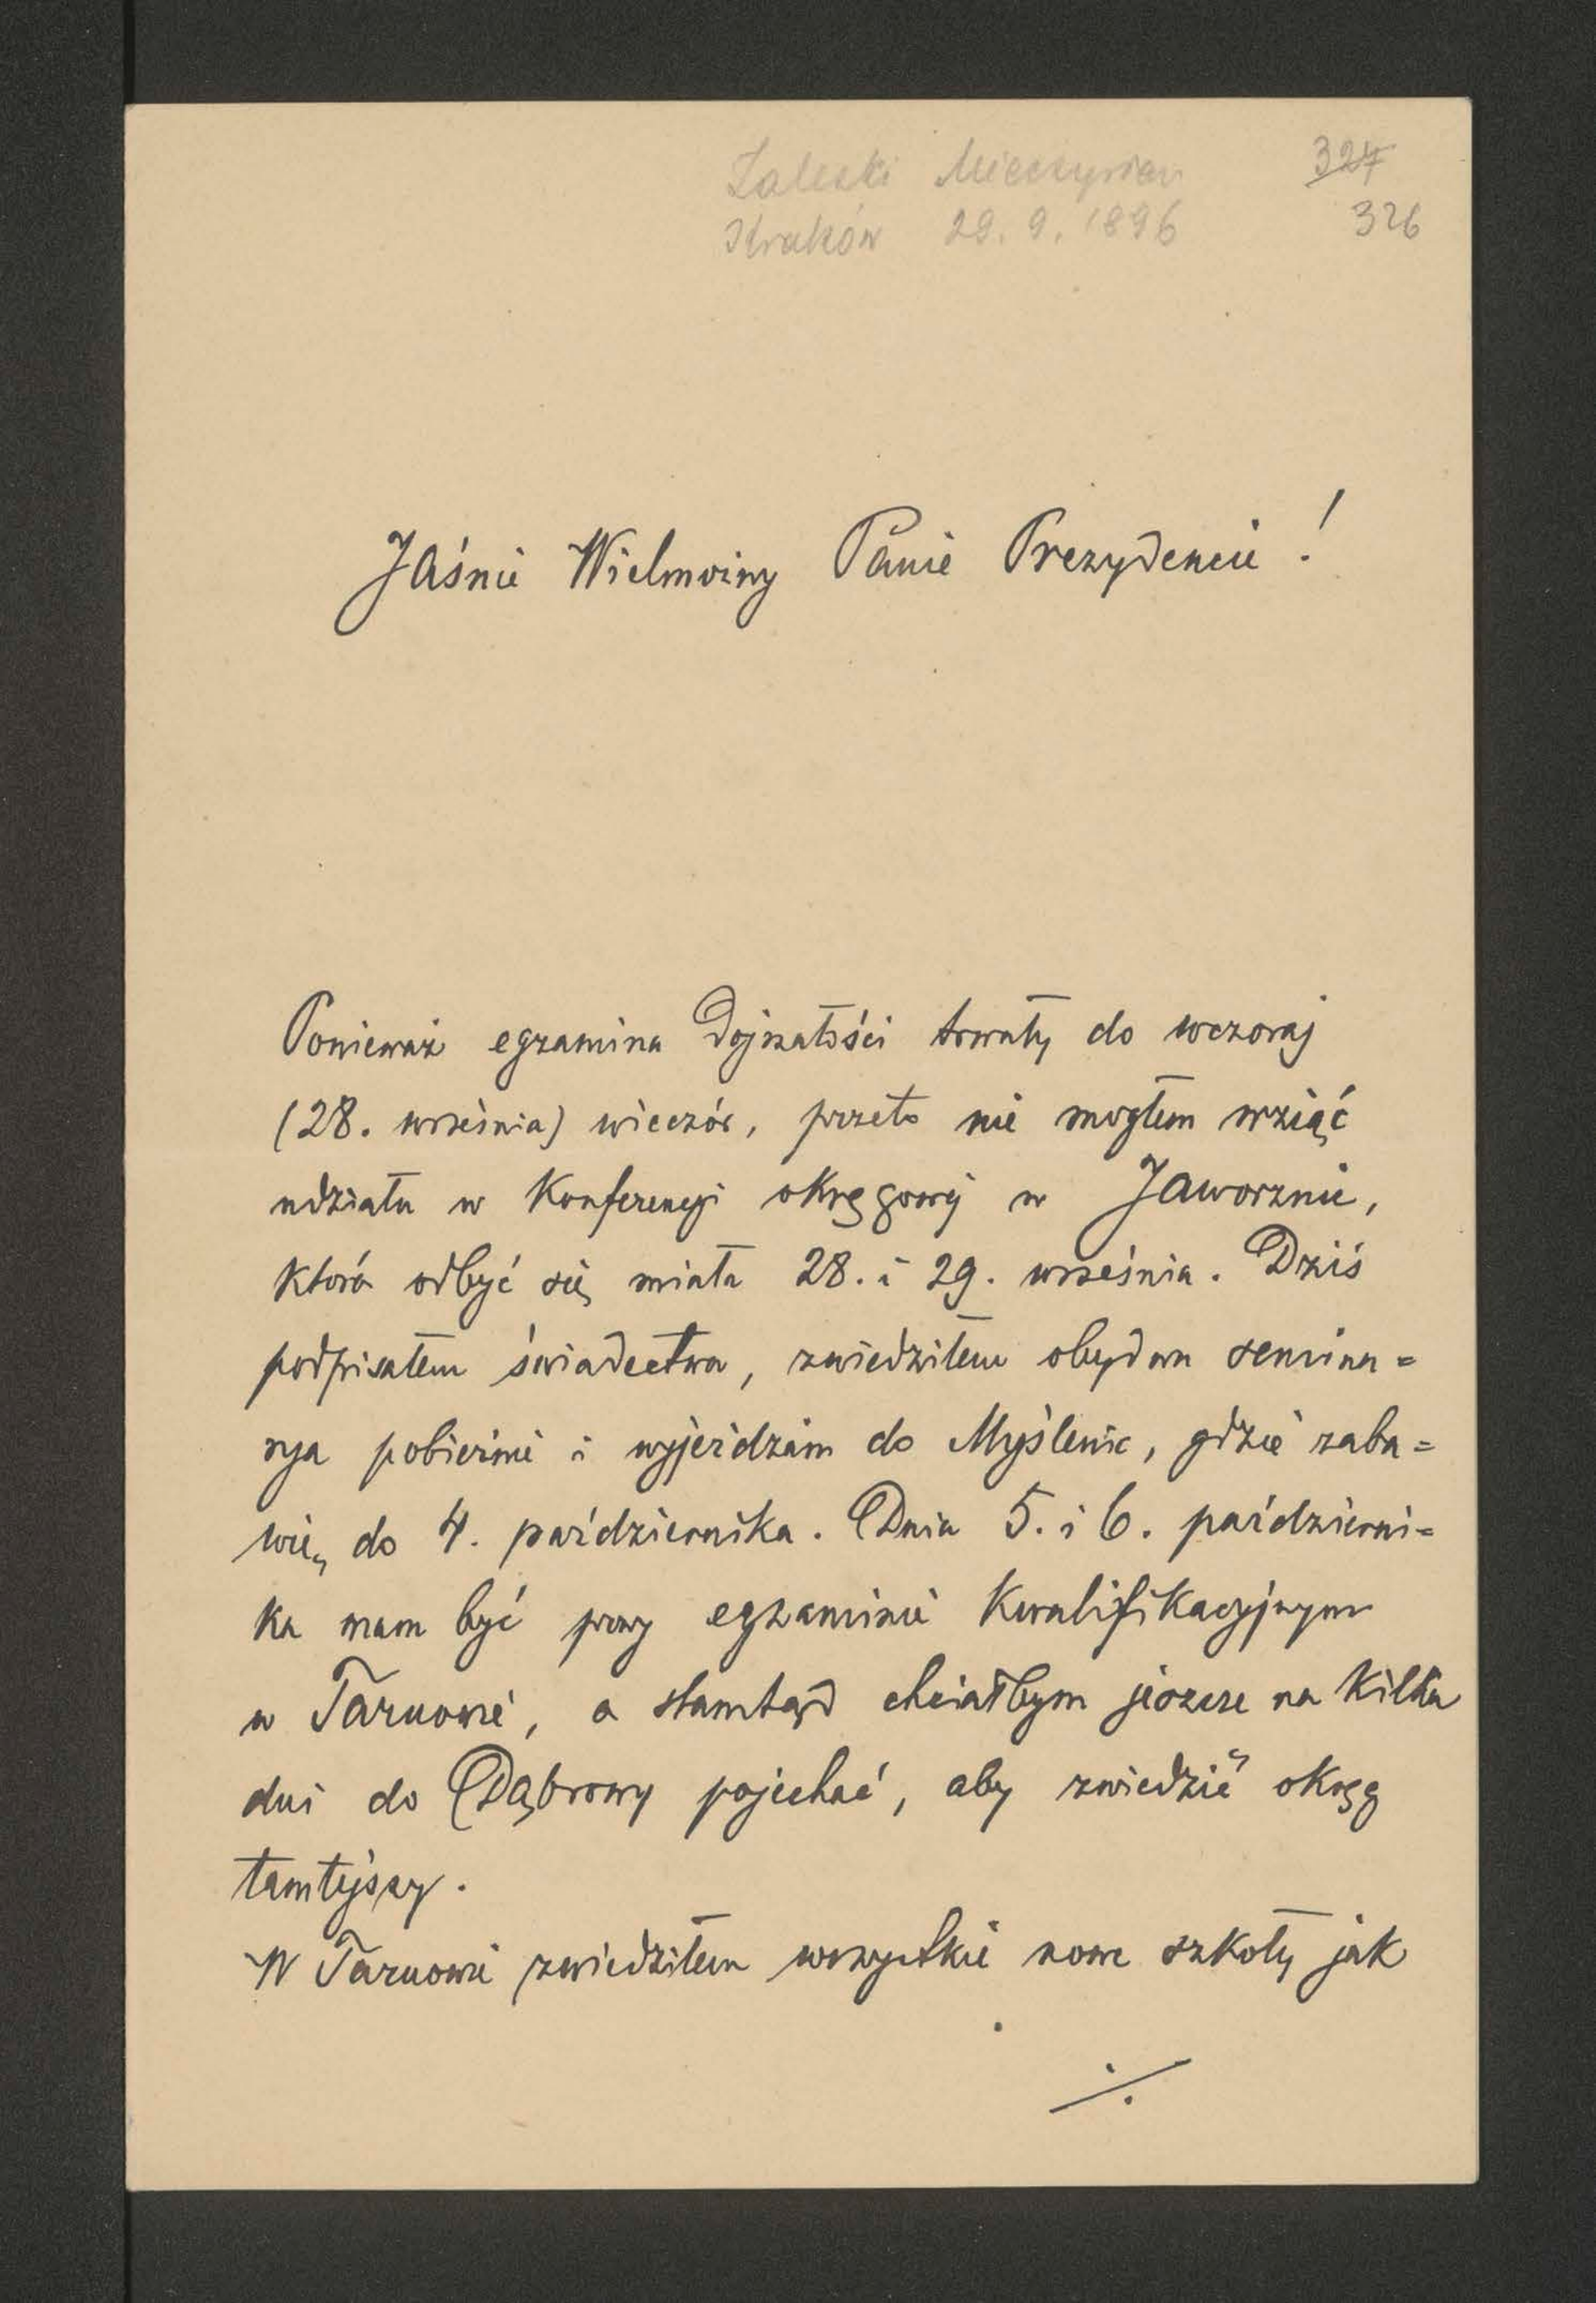 Zaleski Mieczysław 327
Kraków 29. 9. 1896 326
Jaśnie Wielmożny Panie Prezydencie!
Ponieważ egzamina dojrzałości trwały do wczoraj
(28. września) wieczór, przeto nie mogłem wziąć
udziału w Konferencyi okręgowej w Jaworznie,
która odbyć się miała 28. i 29. września. Dziś
podpisałem świadectwa, zwiedziłem obydwa semina=
rya pobieżnie i wyjeżdżam do Myślenic, gdzie zaba=
wię do 4. października. Dnia 5. i 6. październi=
ka mam być przy egzaminie Kwalifikacyjnym
w Tarnowie, a stamtąd chciałbym jeszcze na kilka
dni do Dąbrowy pojechać, aby zwiedzić okręg
tamtejszy.
W Tarnowie zwiedziłem wszystkie nowe szkoły jak
./.